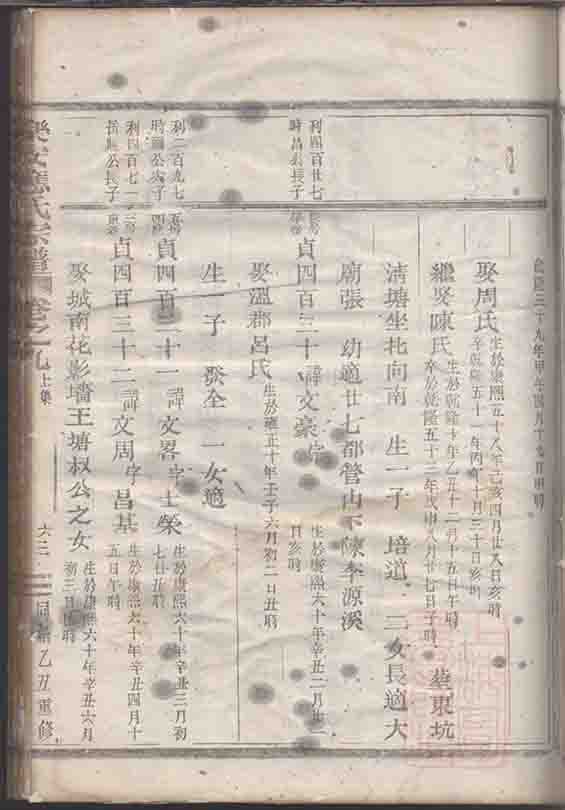 乾隆三十九年甲午四月十九日申時
娶周氏 生於康熙五十八年己亥四月廿八日亥時
卒乾隆五十一年丙午十月三十日亥時
繼娶陳氏 生於乾隆十年乙丑十二月十五日午時
卒於乾隆五十三年戊申八月廿七日子時 葬東坑
清塘坐北向南 生一子 培道 二女長適大
廟張 幼適廿七都管山下陳李源溪
利四百廿七
時昌公長子
貞四百三十 諱文豪字 生於康熙六十年辛丑二月廿一
日亥時
娶溫郡呂氏 生於雍正十年壬子六月初二日丑時
生一子 發全 一女適
利二百九七
時爾公次子
貞四百三十一 諱文畧字士榮 生於康熙六十年辛丑三月初
七日丑時
利四百七一
公長子
貞四百三十二 諱文周字昌基 生於康熙六十年辛丑四月十
五日午時
娶城南花影墻王塘叔公之女 生於康熙六十年辛丑六月
初三日 時
樂安應氏宗譜 卷之九 上集
六三
同治乙丑重修